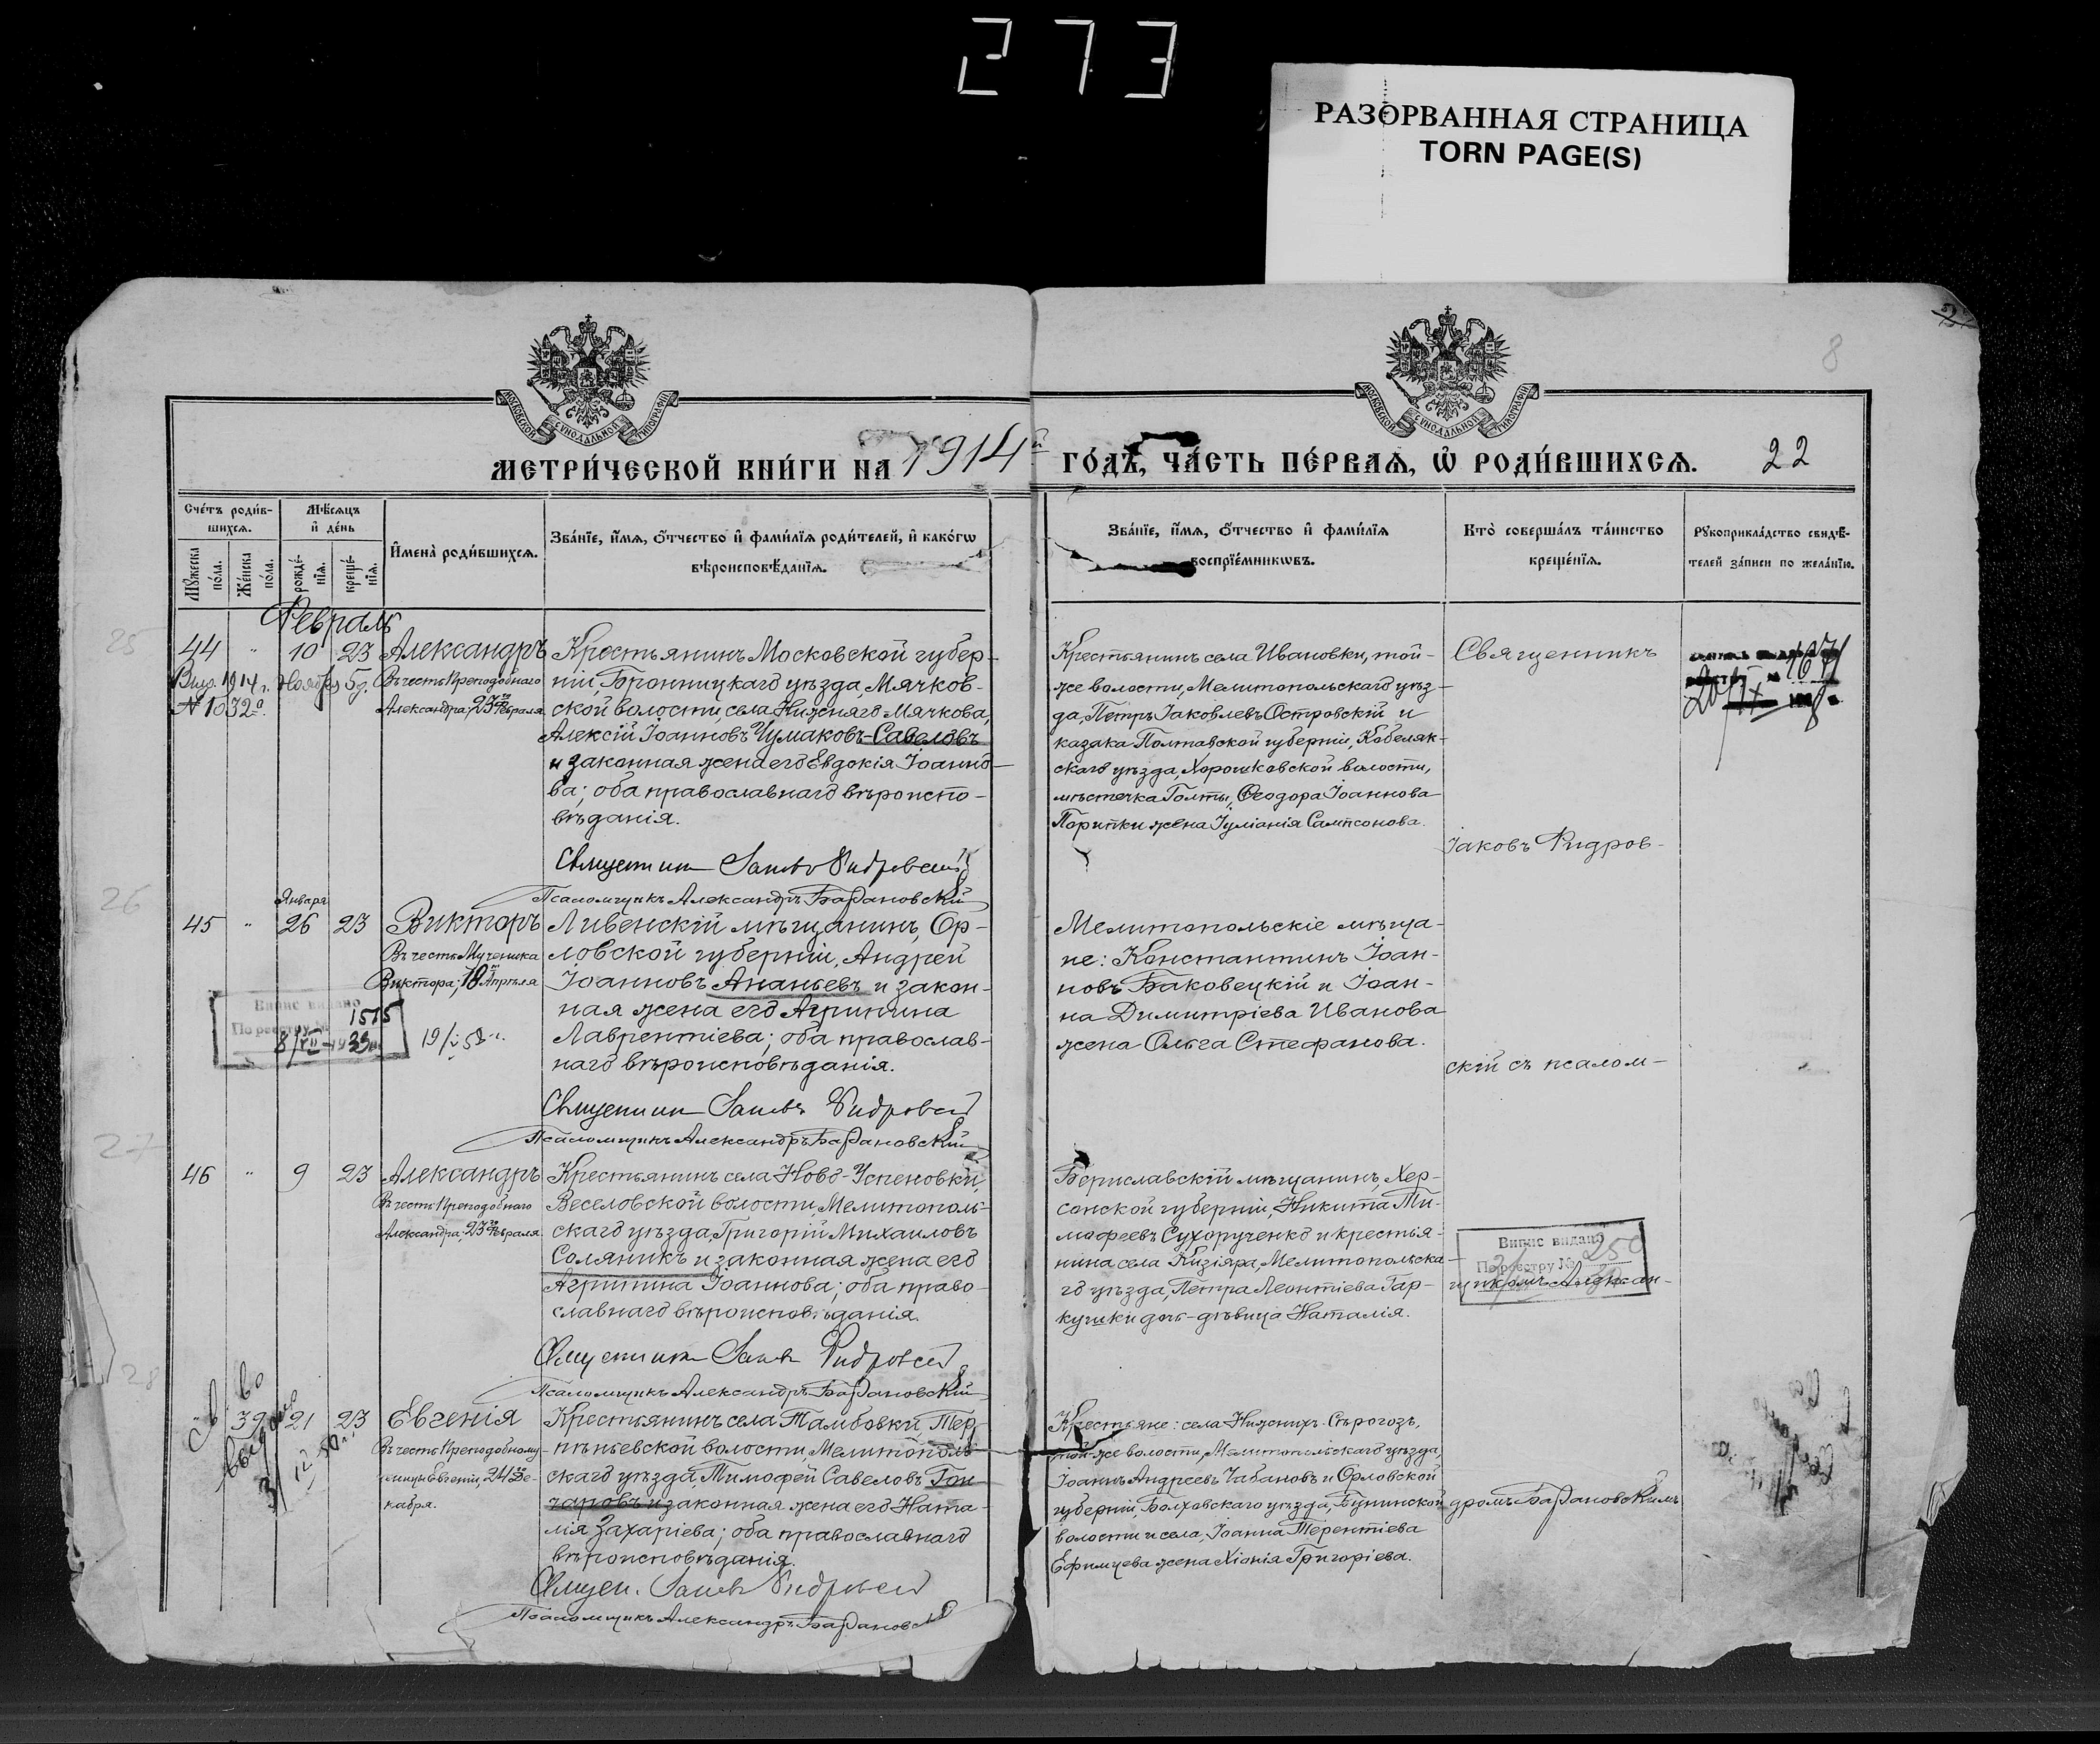 273
РАЗОРВАННАЯ СТРАНИЦА
TORN PAGE(S)
8
МОСКОВСКОЙ СѴНОДАЛЬНОЙ ТИПОГРАФІИ
МОСКОВСКОЙ СѴНОДАЛЬНОЙ ТИПОГРАФІИ
МЕТРИ́ЧЕСКОЙ КНИ́ГИ НА 1914й ГО́ДЪ, ЧА́СТЬ ПЕ́РВАЯ, Ѡ҆ РОДИ́ВШИХСЯ. 22
Сче́тъ роди́в-
шихся.
Мꙋ́жеска
по́ла.
Же́нска
по́ла.
Мѣ́сяцъ
и҆ де́нь
рожде́-
нїя.
креще́-
нїя.
И҆мена̀ роди́вшихся.
Зва́нїе, и҆́мя, ѻ҆́тчество и҆ фами́лїя роди́телей, и҆ како́гѡ
вѣроисповѣ́данїя.
Зва́нїе, и҆́мя, ѻ҆́тчество и҆ фами́лїя
воспрїе́мникѡвъ.
Кто̀ соверша́лъ та́инство
креще́нїя.
Рꙋкоприкла́дство свидѣ́-
телей за́писи по жела́нїю.
Февраль
25
44 " 10 23 Александръ
Выд. 1914 г. Ноября 5 д.
№ 1032
Въ честь Преподобнаго
Александра, 23го Февраля
Крестьянинъ Московской губер-
ніи, Бронницкаго уѣзда, Мячков-
ской волости, села Нижняго Мячкова,
Алексій Іоанновъ Чумаковъ-Савеловъ
и законная жена его Евдокія Іоанно-
ва; оба православнаго вѣроиспо-
вѣданія.
Священник Іаковъ Ридровскій
Псаломщикъ Александръ Барановскій
Крестьянинъ села Ивановки, той-
же волости, Мелитопольскаго уѣз-
да, Петръ Іаковлевъ Островскій и
казака Полтавской губерніи, Кобеляк-
скаго уѣзда, Хорошковской волости,
мѣстечка Голты, Ѳеодора Іоаннова
Порипки жена Іуліанія Сампсонова.
Священникъ
Іаковъ Ридров-
20/IX
26
Января
45 " 26 23 Викторъ
Въ честь Мученика
Виктора; 18го Апрѣля
Випис видано
По реестру № 1515
8/VII-1933
19/V 58 г.
Ливенскій мѣщанинъ, Ор-
ловской губерніи, Андрей
Іоанновъ Ананьевъ и закон-
ная жена его Агрипина
Лаврентіева; оба православ-
наго вѣроисповѣданія.
Священник Іаковъ Ридровскій
Псаломщикъ Александръ Барановскій
Мелитопольскіе мѣща-
не: Константинъ Іоан-
новъ Баковецкій и Іоан-
на Димитріева Иванова
жена Ольга Стефанова.
скій съ псалом-
27
46 " 9 23 Александръ
Въ честь Преподобнаго
Александра, 23го Февраля.
Крестьянинъ села Ново-Успеновки,
Веселовской волости, Мелитополь-
скаго уѣзда, Григорій Михаиловъ
Соляникъ и законная жена его
Агрипина Іоаннова; оба право-
славнаго вѣроисповѣданія.
Священник Іаковъ Ридровскій
Псаломщикъ Александръ Барановскій
Бериславскій мѣщанинъ, Хер-
сонской губерніи, Никита Ти-
мофеевъ Сухорученко и крестья-
нина села Кизіяра, Мелитопольска-
го уѣзда, Петра Леонтіева Гар-
кушки дочь-дѣвица Наталія.
Випис видано
По реестру № 250
щикомъ Алексан-
28
" 39 21 23 Евгенія
Въ честь Преподобному-
ченицы Евгеніи, 24го Де-
кабря.
Крестьянинъ села Тамбовки, Тер-
пѣньевской волости, Мелитополь-
скаго уѣзда, Тимофей Савеловъ Гон-
чаровъ и законная жена его Ната-
лія Захаріева; оба православнаго
вѣроисповѣданія.
Священ. Іаковъ Ридровскій
Псаломщикъ Александръ Барановскій
Крестьяне: села Нижнихъ-Сѣрогозъ,
той-же волости, Мелитопольскаго уѣзда,
Іоаннъ Андреевъ Чабановъ и Орловской
губерніи, Болховскаго уѣзда, Бунинской
волости и села, Іоанна Терентіева
Ефимцева жена Хіонія Григоріева.
дромъ Барановскимъ